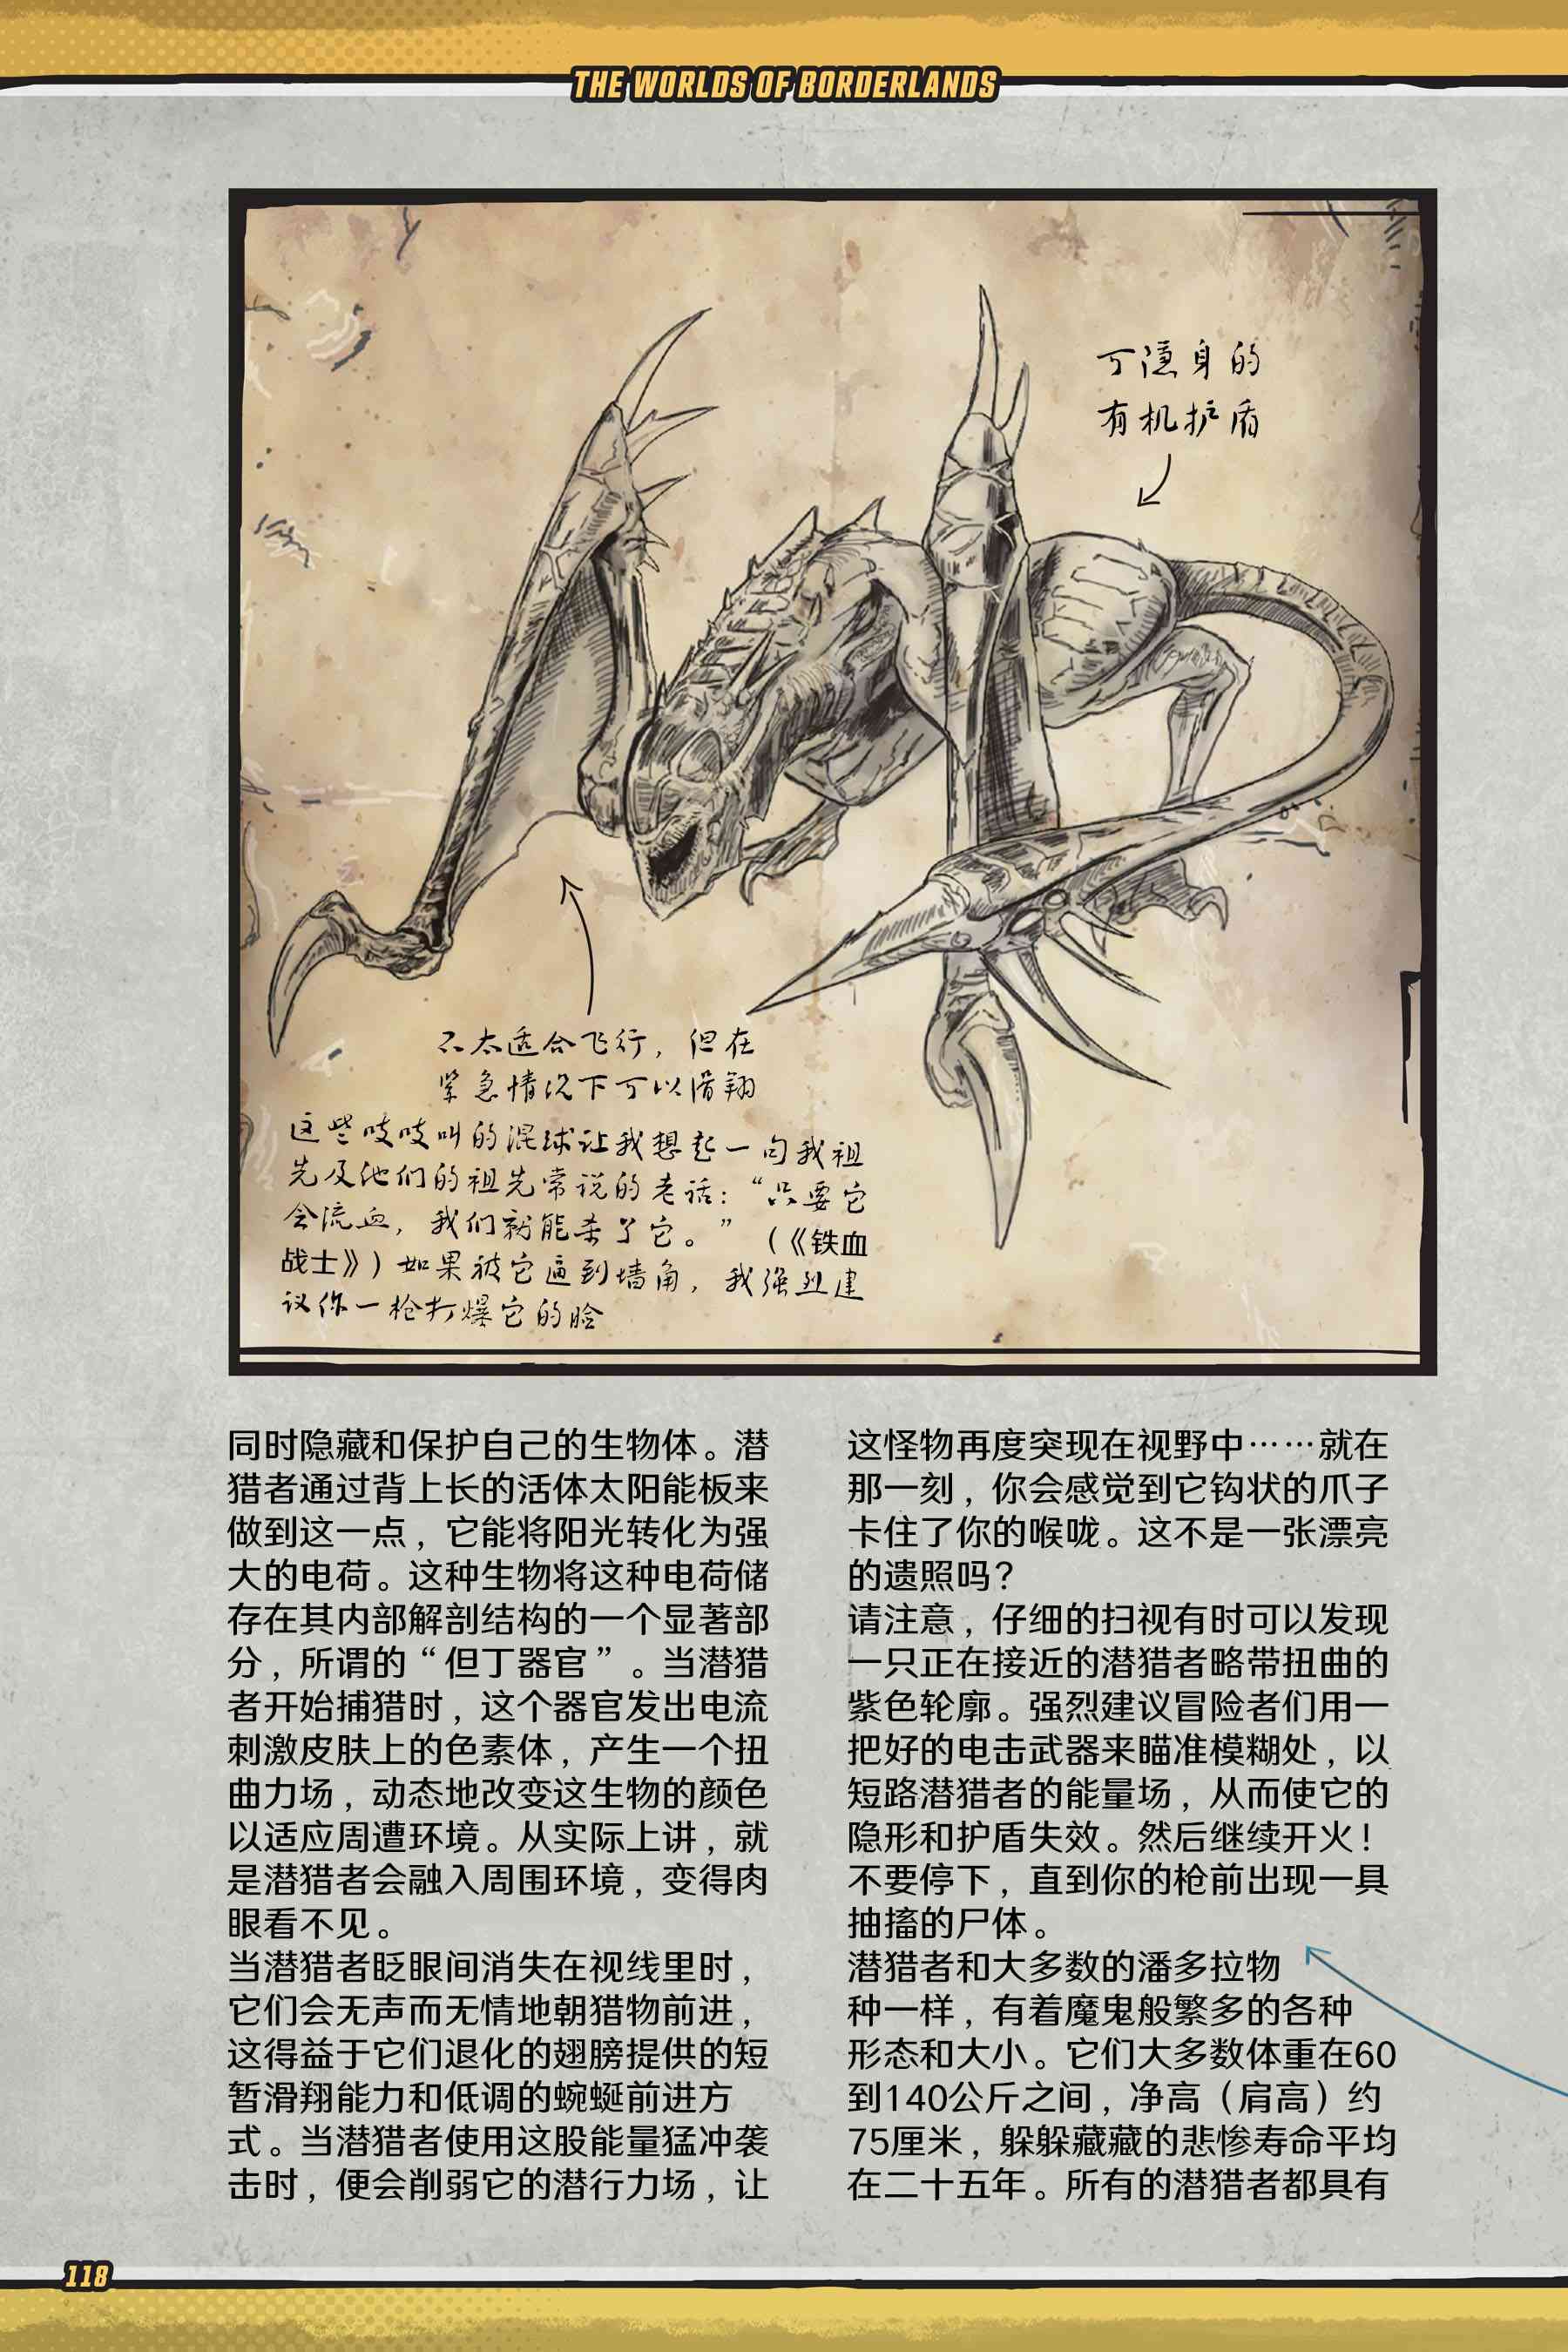 THE WORLDS OF BORDERLANDS
可隐身的
有机护盾
不太适合飞行，但在
紧急情况下可以滑翔
这些吱吱叫的混球让我想起一句我祖
先及他们的祖先常说的老话：“只要它
会流血，我们就能杀了它。”（《铁血
战士》）如果被它逼到墙角，我强烈建
议你一枪打爆它的脸
同时隐藏和保护自己的生物体。潜
猎者通过背上长的活体太阳能板来
做到这一点，它能将阳光转化为强
大的电荷。这种生物将这种电荷储
存在其内部解剖结构的一个显著部
分，所谓的“但丁器官”。当潜猎
者开始捕猎时，这个器官发出电流
刺激皮肤上的色素体，产生一个扭
曲力场，动态地改变这生物的颜色
以适应周遭环境。从实际上讲，就
是潜猎者会融入周围环境，变得肉
眼看不见。
当潜猎者眨眼间消失在视线里时，
它们会无声而无情地朝猎物前进，
这得益于它们退化的翅膀提供的短
暂滑翔能力和低调的蜿蜒前进方
式。当潜猎者使用这股能量猛冲袭
击时，便会削弱它的潜行力场，让
这怪物再度突现在视野中……就在
那一刻，你会感觉到它钩状的爪子
卡住了你的喉咙。这不是一张漂亮
的遗照吗？
请注意，仔细的扫视有时可以发现
一只正在接近的潜猎者略带扭曲的
紫色轮廓。强烈建议冒险者们用一
把好的电击武器来瞄准模糊处，以
短路潜猎者的能量场，从而使它的
隐形和护盾失效。然后继续开火！
不要停下，直到你的枪前出现一具
抽搐的尸体。
潜猎者和大多数的潘多拉物
种一样，有着魔鬼般繁多的各种
形态和大小。它们大多数体重在60
到140公斤之间，净高（肩高）约
75厘米，躲躲藏藏的悲惨寿命平均
在二十五年。所有的潜猎者都具有
118